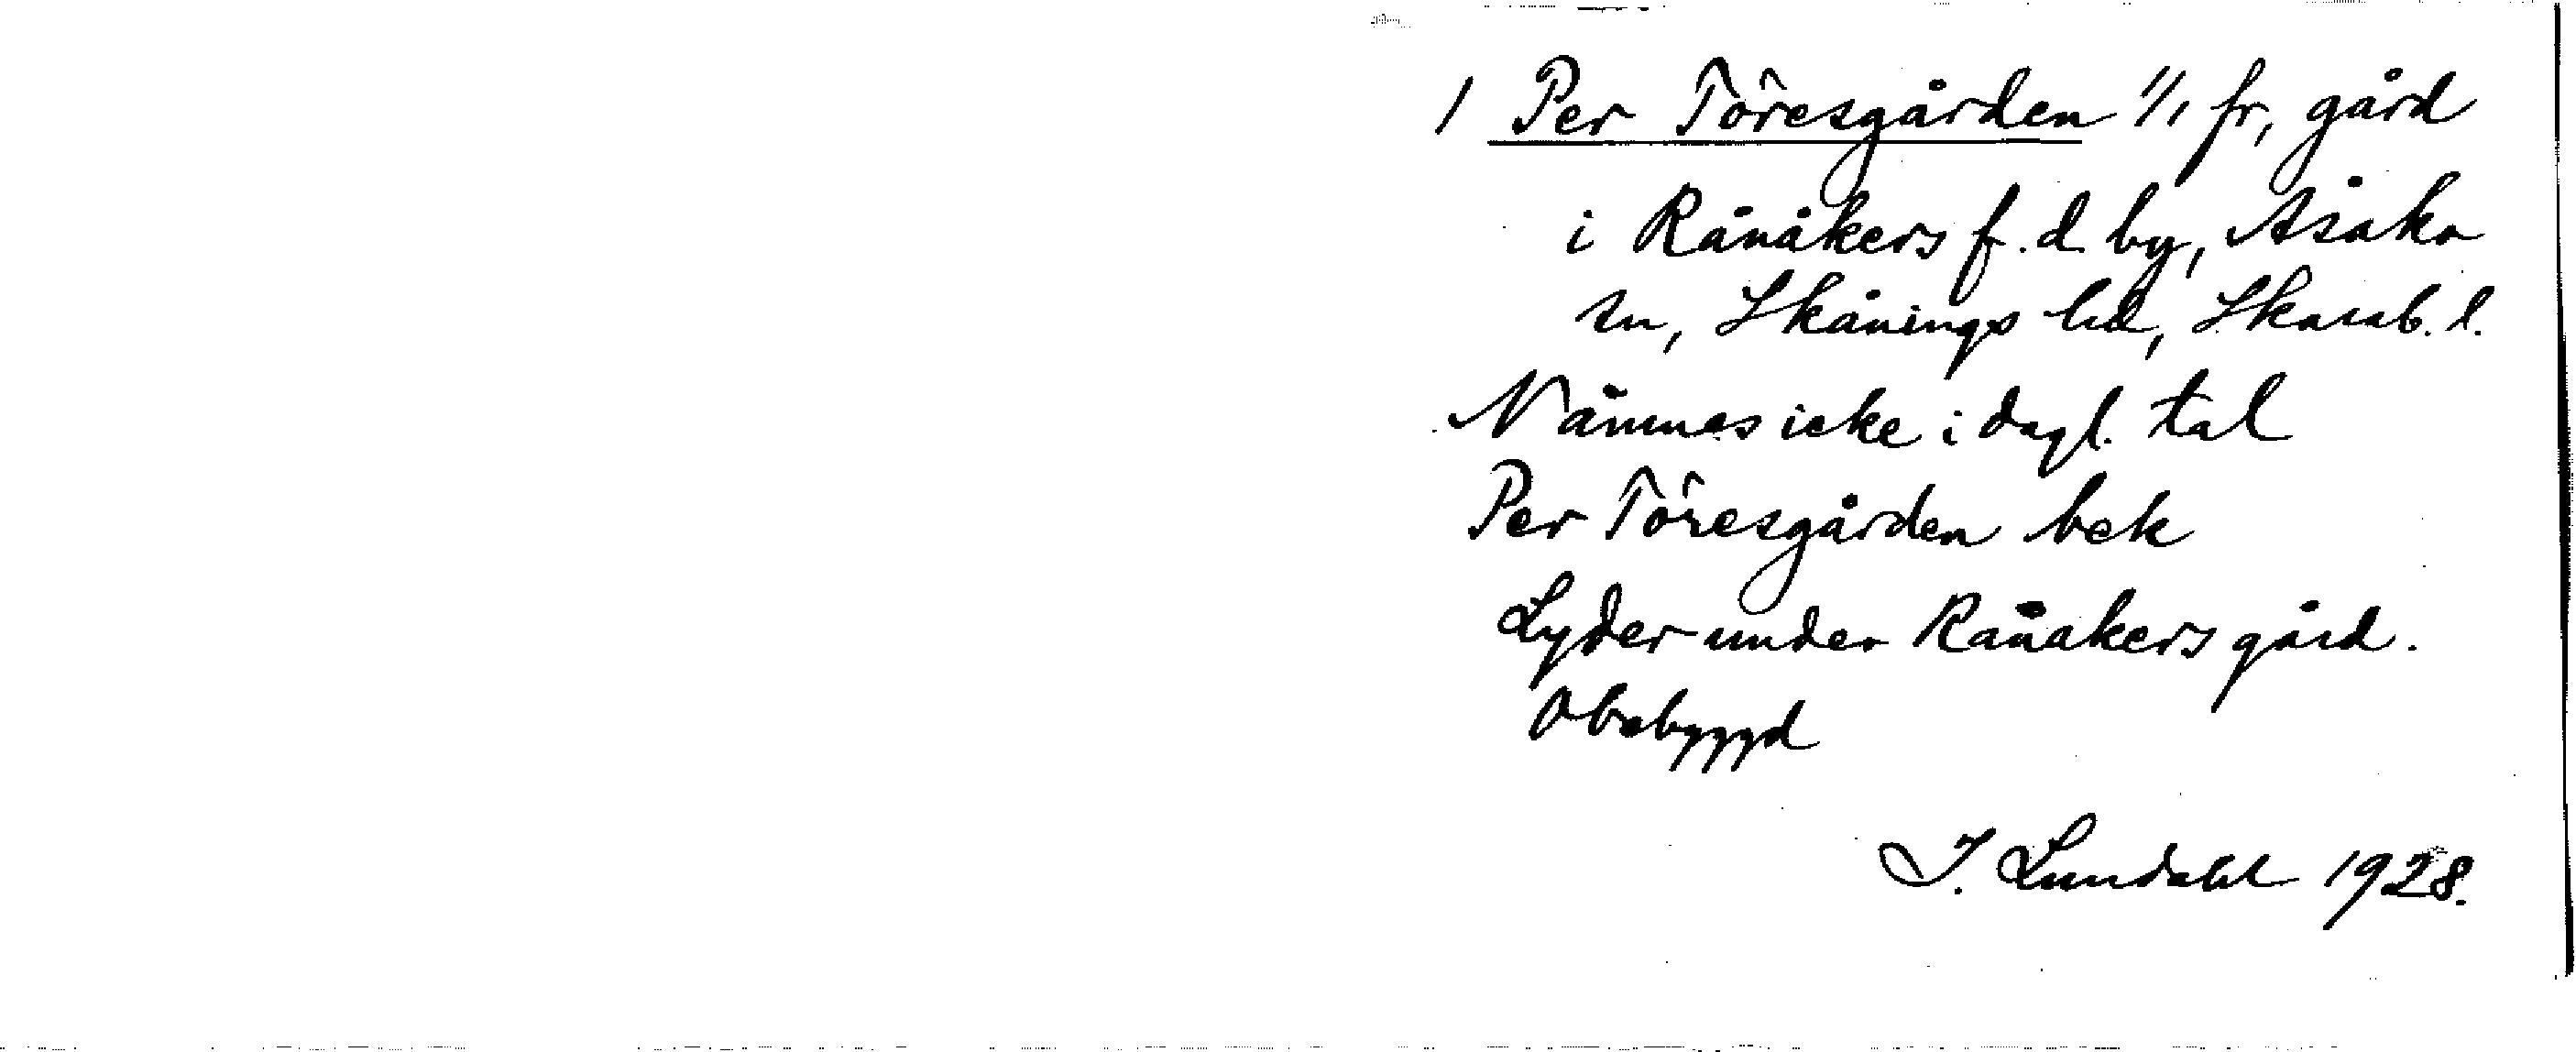 1 Per Töresgården 1/1 fr, gård
i Rånåkers f.d. by, Åsaka
sn, Skånings hd, Skarab. l.
Nämnes icke i dagl. tal
Per Töresgården bek
Lyder under Rånåkers gård.
Obebyggd
I. Lundahl 1928.